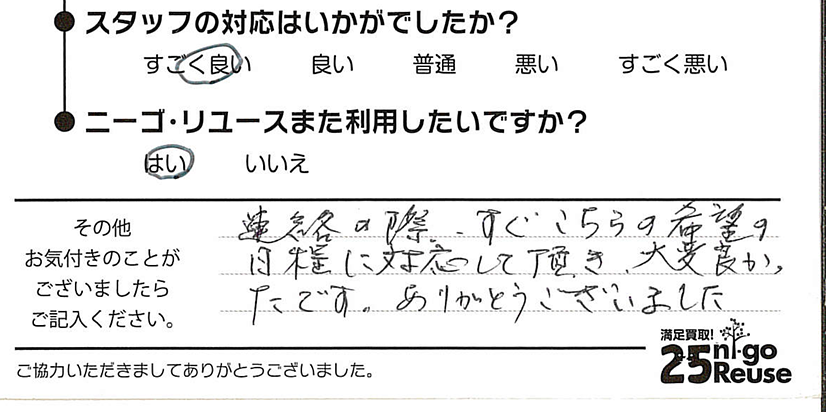 スタッフの対応はいかがでしたか?
すごく良い 良い 普通 悪い すごく悪い
ニーゴ・リユースまた利用したいですか?
はい いいえ
その他
お気付きのことが
ございましたら
ご記入ください。
連絡の際、すぐこちらの希望の
日程に対応して頂き、大変良かっ
たです。ありがとうございました
満足買取!
25 ni-go
Reuse
ご協力いただきましてありがとうございました。